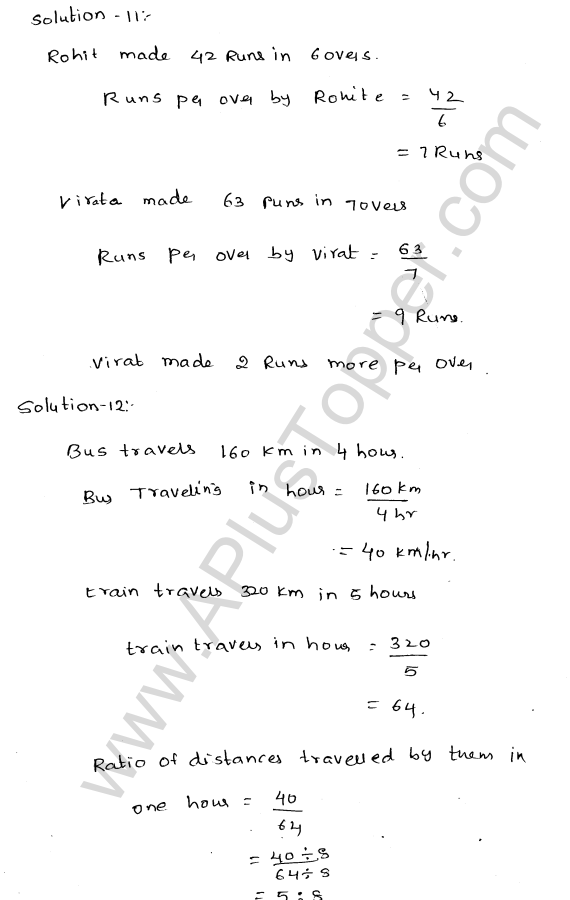 Solution -11:-
Rohit made 42 Runs in 6 overs.
Runs per over by Rohite = 42/6
= 7 Runs
Virata made 63 runs in 7 overs
Runs Per over by virat = 63/7
= 9 Runs.
Virat made 2 Runs more per over.
Solution-12:-
Bus travels 160 km in 4 hour.
Bus Traveling in hour = 160 km/4 hr
= 40 km/hr.
train travels 320 km in 5 hours
train travels in hour = 320/5
= 64.
Ratio of distances travelled by them in
one hour = 40/64
= 40÷8/64÷8
= 5:8
www.APlusTopper.com